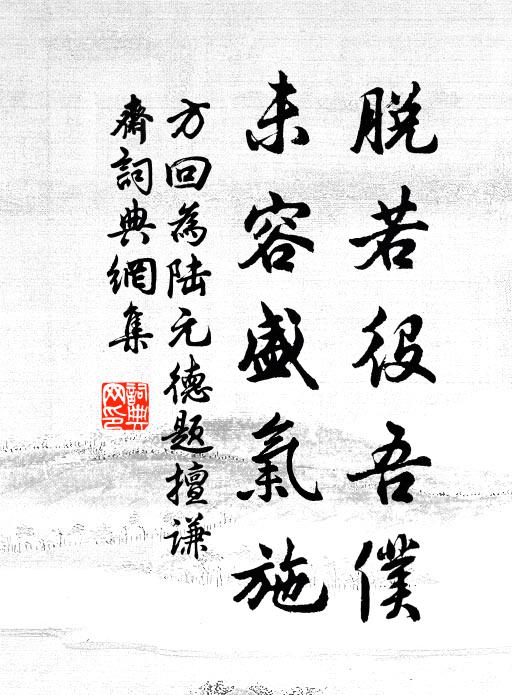 脱若役吾僕
未容盛氣施
方回為陆元德题擅谦
齋詞典網集
詞典
网印